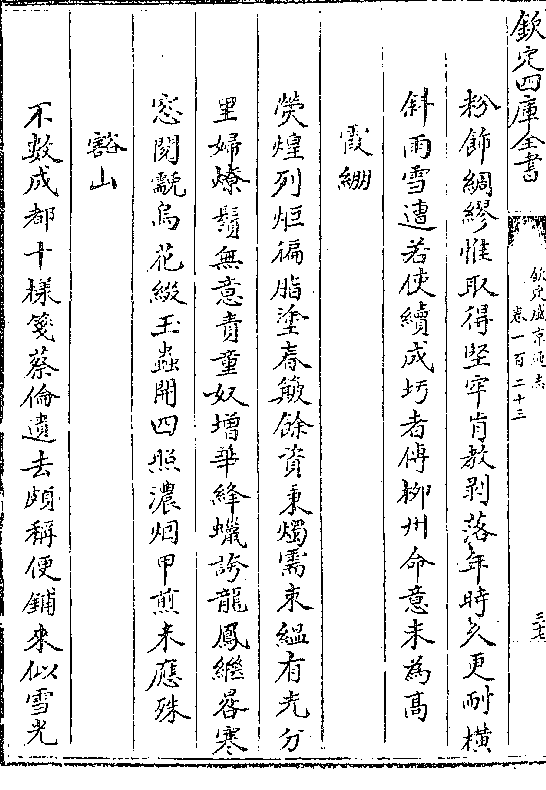 欽定四庫全書
欽定盛京通志
卷一百二十三
三七
粉飾綢繆惟取得堅牢肯教剥落年時久更耐橫
斜雨雪遭若使續成圬者傳柳州命意未為髙
霞綳
熒煌列炬徧脂塗舂簸餘資秉燭需束緼有光分
里婦燎鬚無意責童奴增華絳蠟誇龍鳳繼晷寒
窓閱覿烏花綴玉蟲開四照濃烟甲煎未應殊
豁山
不數成都十樣箋蔡倫遺去頗稱便鋪來似雪光